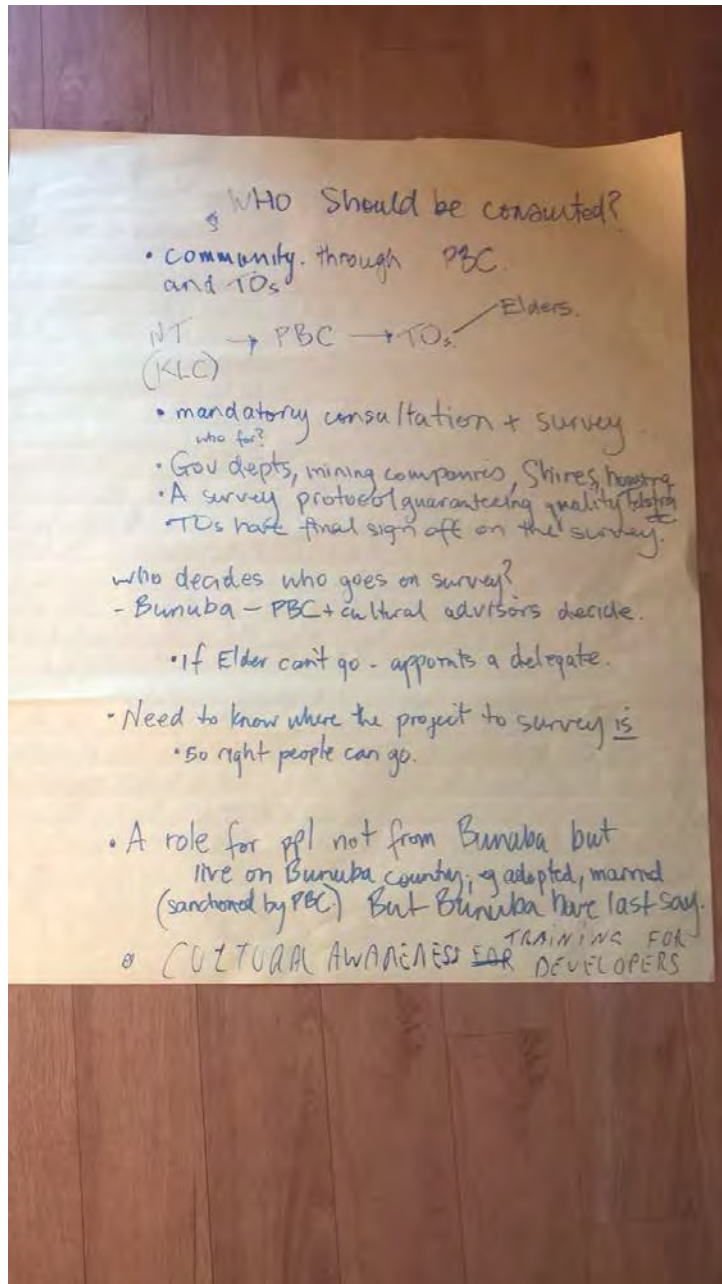 WHO Should be consulted?
• community. through PBC.
and TOs
Elders.
NT → PBC → TOs.
(KLC)
• mandatory consultation + survey
who for?
• Gov depts, mining companies, Shires, housing
• A survey protocol guaranteeing quality Telstra
• TOs have final sign off on the survey.
who decides who goes on survey?
- Bunuba - PBC + cultural advisors decide.
• If Elder can't go - appoints a delegate.
• Need to know where the project to survey is
• So right people can go.
• A role for ppl not from Bunuba but
live on Bunuba country, eg adopted, married
(sanctioned by PBC) But Bunuba have last say.
TRAINING FOR
• CULTURAL AWARENESS FOR DEVELOPERS